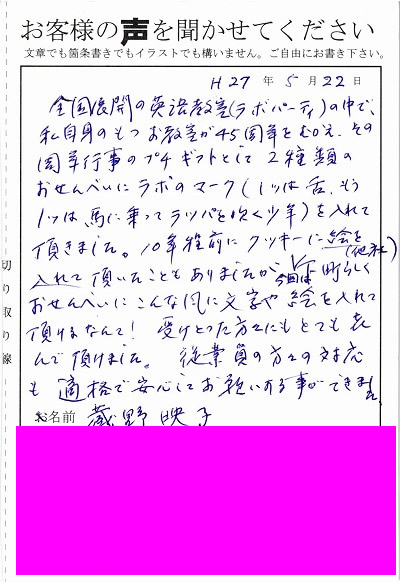 お客様の声を聞かせてください
文章でも箇条書きでもイラストでも構いません。ご自由にお書き下さい。
H27年5月22日
全国展開の英語教室(ラボパーティ)の中で、
私自身のもつお教室が45周年をむかえ、その
周年行事のプチギフトとして2種類の
おせんべいにラボのマーク(1つは舌、もう
1つは馬に乗ってラッパを吹く少年)を入れて
頂きました。10年程前にクッキーに絵を(他社)
入れて頂いたこともありましたが今回は下町らしく
おせんべいにこんな風に文字や絵を入れて
頂けるなんて!受けとった方々にもとても喜
んで頂けました。従業員の方々の対応
も適格で安心してお願いする事ができました。
お名前 蔵野映子
切り取り線